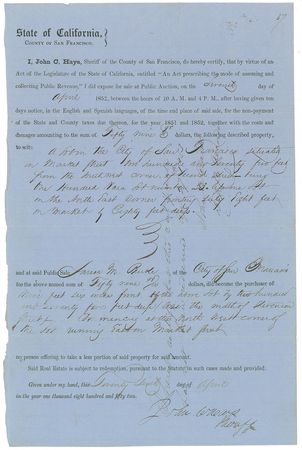 State of California,
COUNTY OF SAN FRANCISCO.
I, John C. Hays, Sheriff of the County of San Francisco, do hereby certify, that by virtue of an
Act of the Legislature of the State of California, entitled "An Act prescribing the mode of assessing and
collecting Public Revenue," I did expose for sale at Public Auction, on the second day of
April 1852, between the hours of 10 A. M. and 4 P. M., after having given ten
days notice, in the English and Spanish languages, of the time and place of said sale, for the non-payment
of the State and County taxes due thereon, for the year 1851 and 1852, together with the costs and
damages amounting to the sum of Fifty Nine dollars, the following described property,
to wit: A lot in the City of San Francisco situated
on Market Street One hundred and Seventy five feet
from the corner of Second Street being
One hundred Vara lot number
on the South East corner fronting Sixty Eight feet
on Market by Eighty feet deep.
and at said Public Sale, James M. of the City of San Francisco
for the above named sum of Fifty nine dollars, did become the purchaser of
Three feet six inches front of the above lot by two hundred
and seventy two feet deep
commencing at the North West corner of
the lot running East on Market Street
my person offering to take a less portion of said property for said amount.
Said Real Estate is subject to redemption, pursuant to the Statute in such cases made and provided.
Given under my hand, this Twenty Sixth day of April
in the year one thousand eight hundred and fifty two.
John C Hays
Sheriff